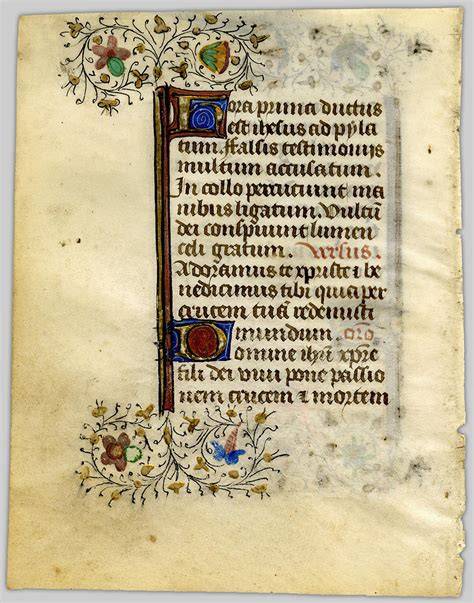 Hora prima ductus
est ihesus ad pyla
tum. Falsis testimonijs
multum accusatum.
In collo percuciunt ma
nibus ligatum. Vultū
dei conspuunt lumen
celi gratum. Versus.
Adoramus te xp̄riste i be
nedicimus tibi quia per
crucem tuā redemisti
mundum. Orō
Domine ihū xp̄re
fili dei viui pone passio
nem crucem i mortem